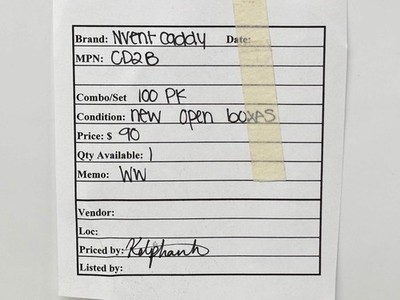 Brand: Nvent caddy Date:
MPN: CD2B
Combo/Set 100 PK
Condition: new open boxAS
Price: $ 90
Qty Available: 1
Memo: WW
Vendor:
Loc:
Priced by:
Listed by: